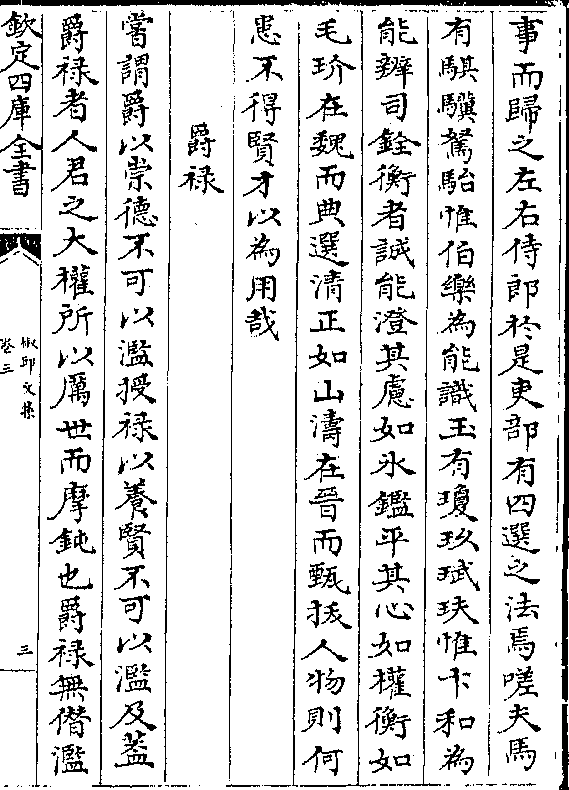 事而歸之左右侍郎於是吏部有四選之法焉嗟夫馬
有騏驥駑駘惟伯樂為能識玉有瓊玖珷玞惟卞和為
能辨司銓衡者誠能澄其慮如氷鑑平其心如權衡如
毛玠在魏而典選清正如山濤在晉而甄拔人物則何
患不得賢才以為用哉
爵禄
嘗謂爵以崇德不可以濫授禄以養賢不可以濫及葢
爵禄者人君之大權所以厲世而摩鈍也爵禄無僭濫
欽定四庫全書
椒邱文集
卷三
三